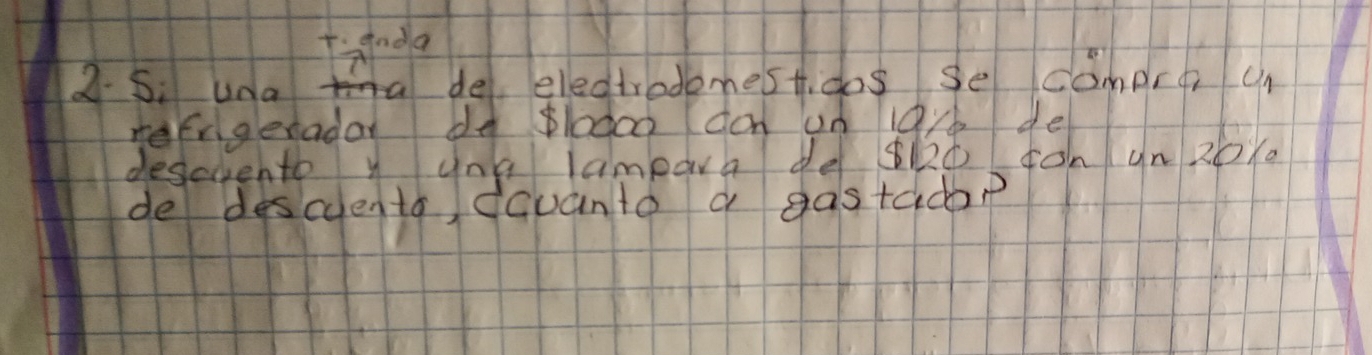 tienda
2. Si una tina de electrodomesticos se compra un
refrigerador de $10000 con un 10% de
descuento y una lampara de $120 con un 20%
de descuento, ¿cuanto a gastado?